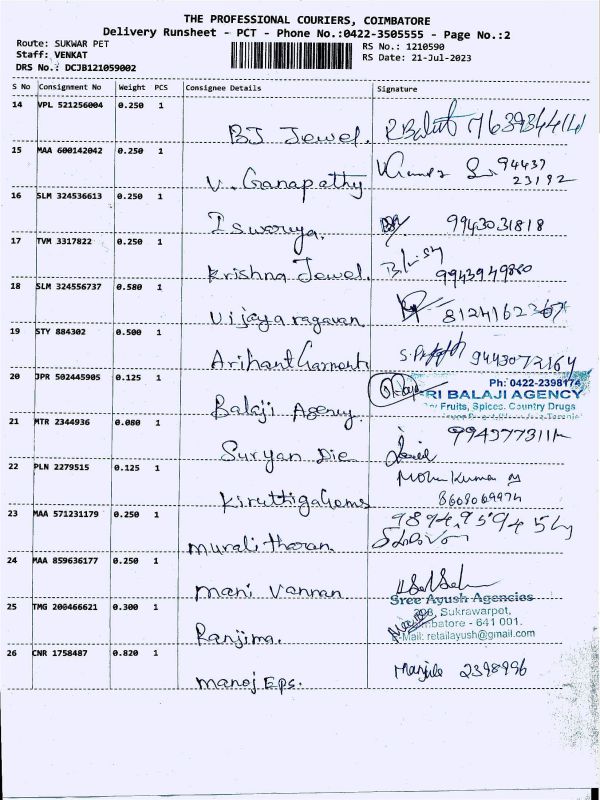 THE PROFESSIONAL COURIERS, COIMBATORE
Delivery Runsheet - PCT - Phone No.:0422-3505555 - Page No.:2
Route: SUKWAR PET
Staff: VENKAT
DRS No.: DCJB121059002
RS No.: 1210590
RS Date: 21-Jul-2023
S No Consignment No Weight PCS Consignee Details Signature
14 VPL 521256004 0.250 1
BJ Jewel.
15 MAA 600142042 0.250 1
V. Ganapathy 94437
23192
16 SLM 324536613 0.250 1
Iswarya. 9943031818
17 TVM 3317822 0.250 1
Krishna Jewel. 9943949880
18 SLM 324556737 0.580 1
Vijaya ragavan
19 STY 884302 0.500 1
Arihant Garments 9443072164
20 JPR 502445905 0.125 1
Balaji Agency.
Ph: 0422-2398174
RI BALAJI AGENCY
Fruits, Spices, Country Drugs
21 MTR 2344936 0.080 1
Suryan Die
22 PLN 2279515 0.125 1
Kiruttiga Gems
Mohan Kumar M
8608069974
23 MAA 571231179 0.250 1
Murali tharan
24 MAA 859636177 0.250 1
Mani Vannan
25 TMG 200466621 0.300 1
Ranjima.
Sree Ayush Agencies
Sukrawarpet,
mbatore - 641 001.
Mail: retailayush@gmail.com
26 CNR 1758487 0.820 1
Manoj Eps. Manjula 2398996